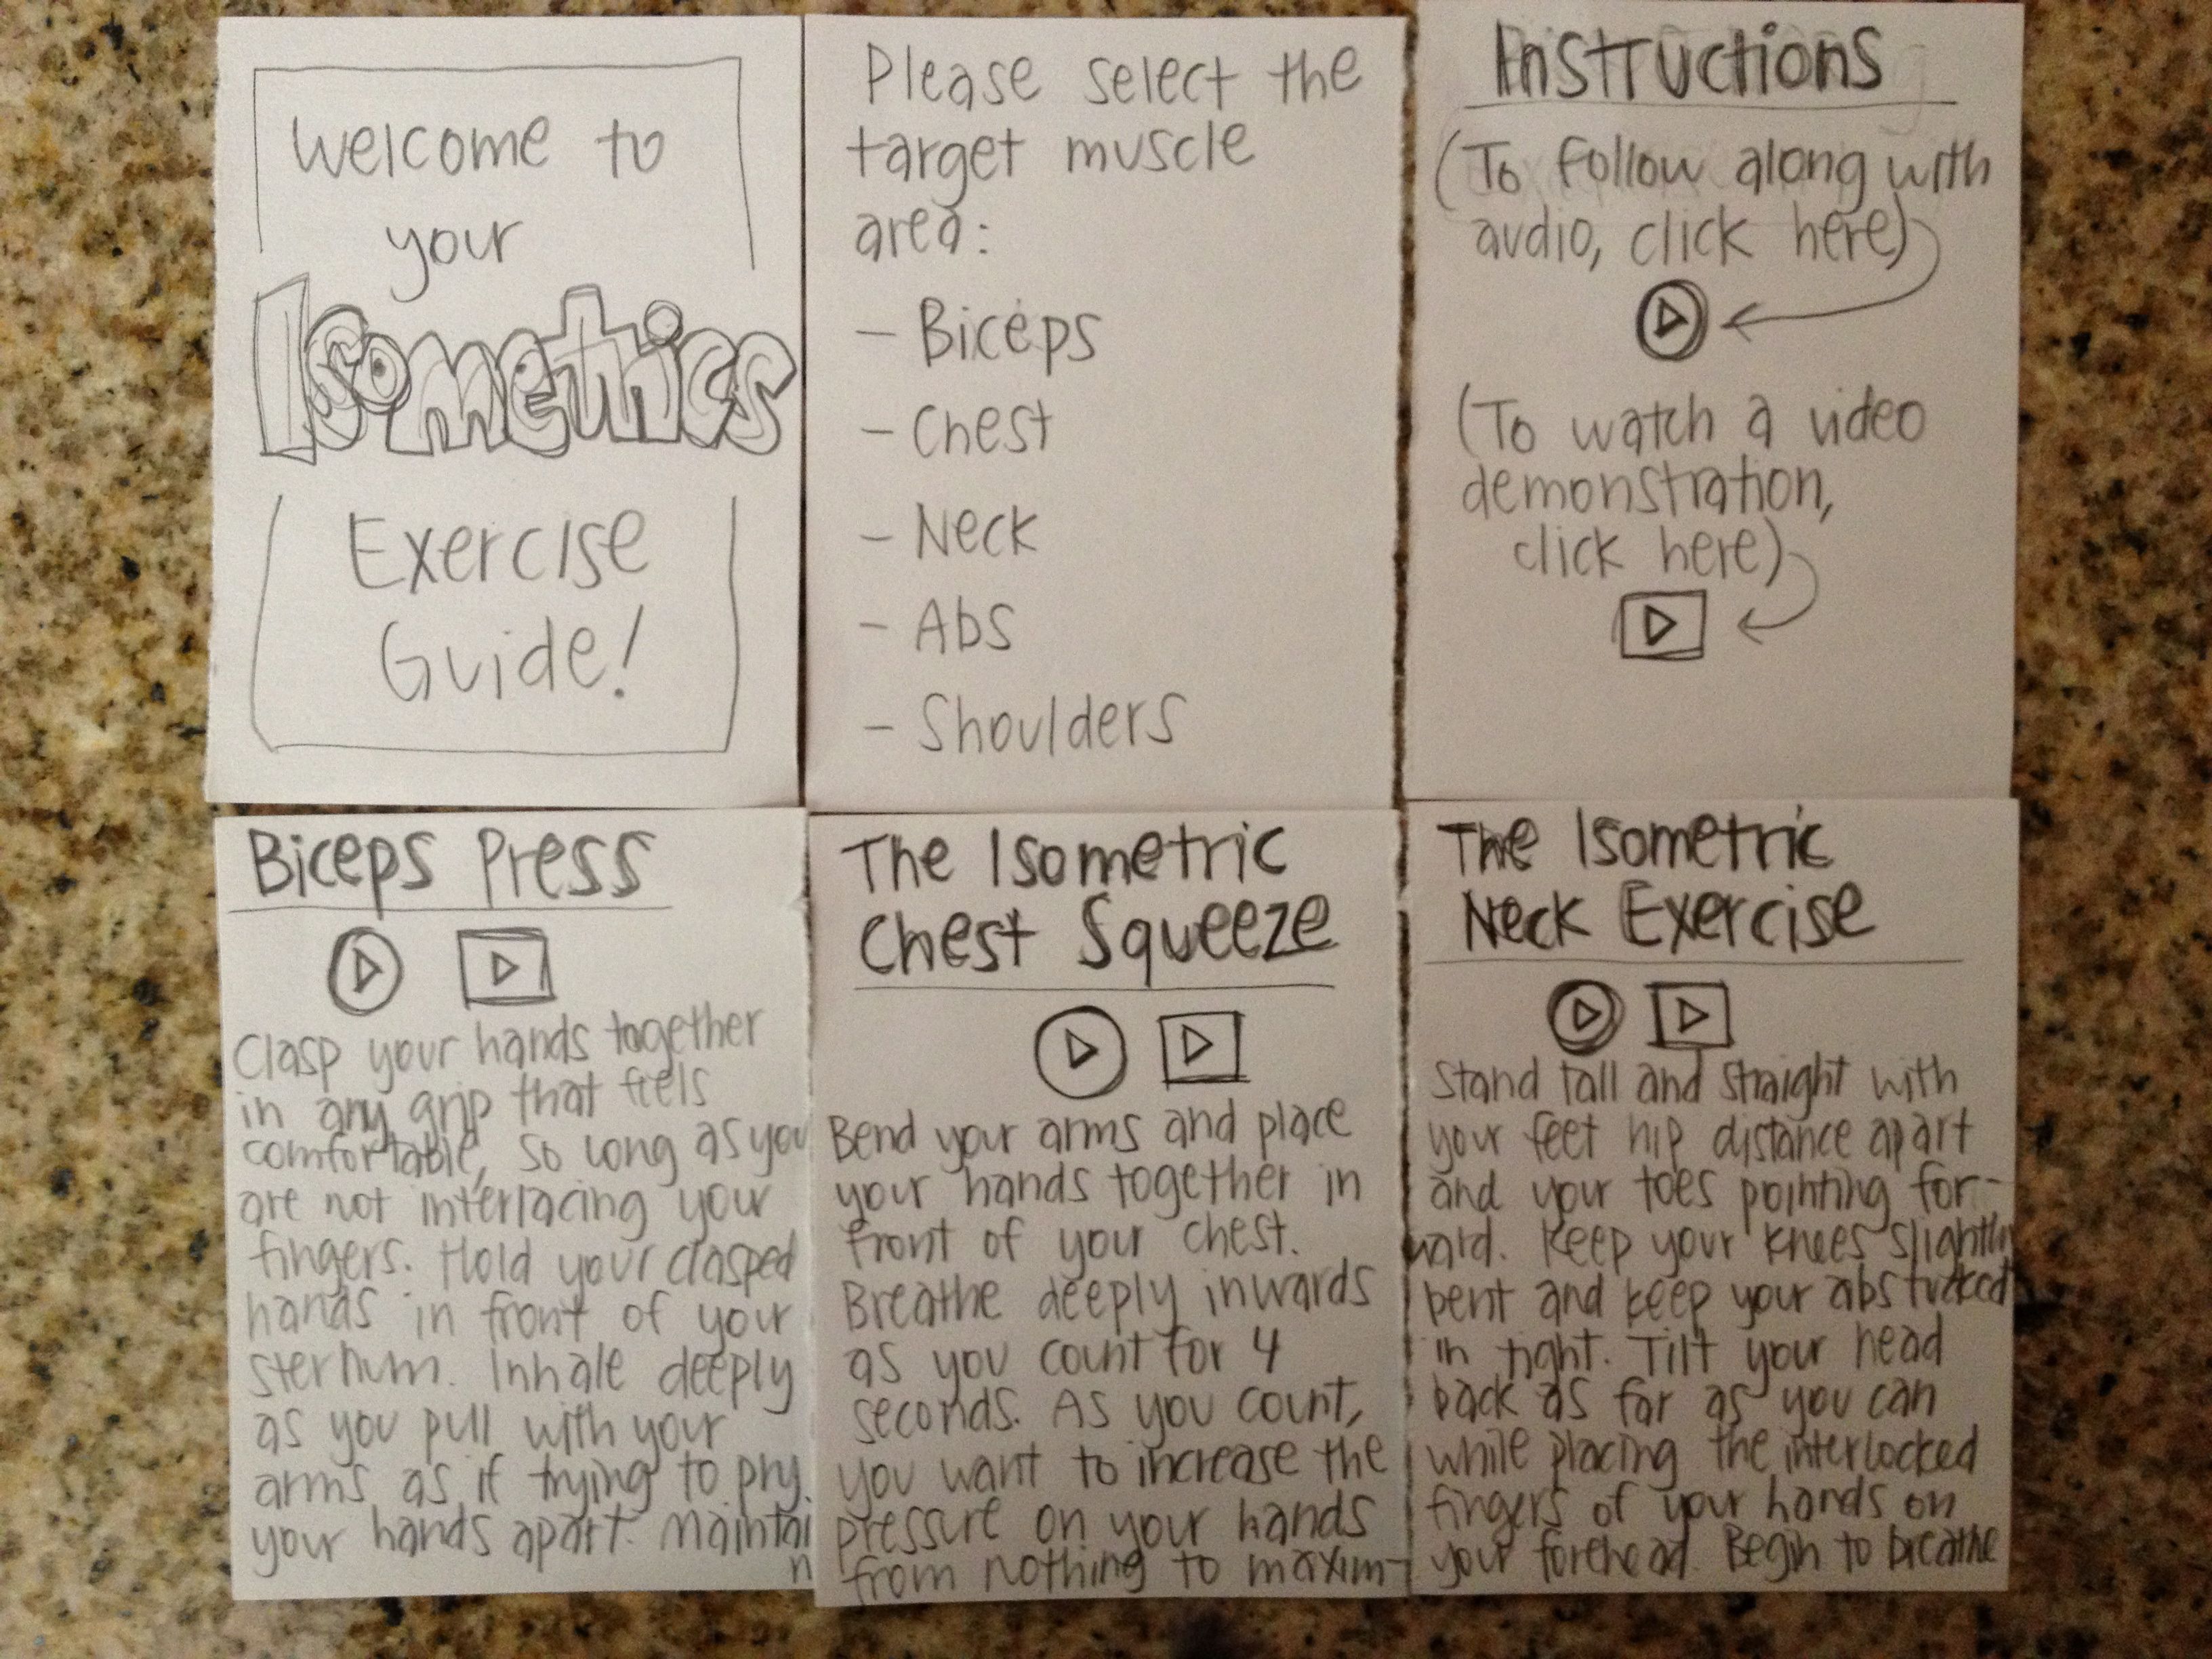 Welcome to
your
Isometrics
Exercise
Guide!
Please select the
target muscle
area:
- Biceps
- Chest
- Neck
- Abs
- Shoulders
Instructions
(To follow along with
audio, click here)
(To watch a video
demonstration,
click here)
Biceps Press
Clasp your hands together
in any grip that feels
comfortable, so long as you
are not interlacing your
fingers. Hold your clasped
hands in front of your
sternum. Inhale deeply
as you pull with your
arms as if trying to pry
your hands apart. Maintai
n
The Isometric
Chest Squeeze
Bend your arms and place
your hands together in
front of your chest.
Breathe deeply inwards
as you count for 4
seconds. As you count,
you want to increase the
pressure on your hands
from nothing to maxim-
The Isometric
Neck Exercise
Stand tall and straight with
your feet hip distance apart
and your toes pointing for-
ward. Keep your knees slightly
bent and keep your abs tucked
in tight. Tilt your head
back as far as you can
while placing the interlocked
fingers of your hands on
your forehead. Begin to breathe